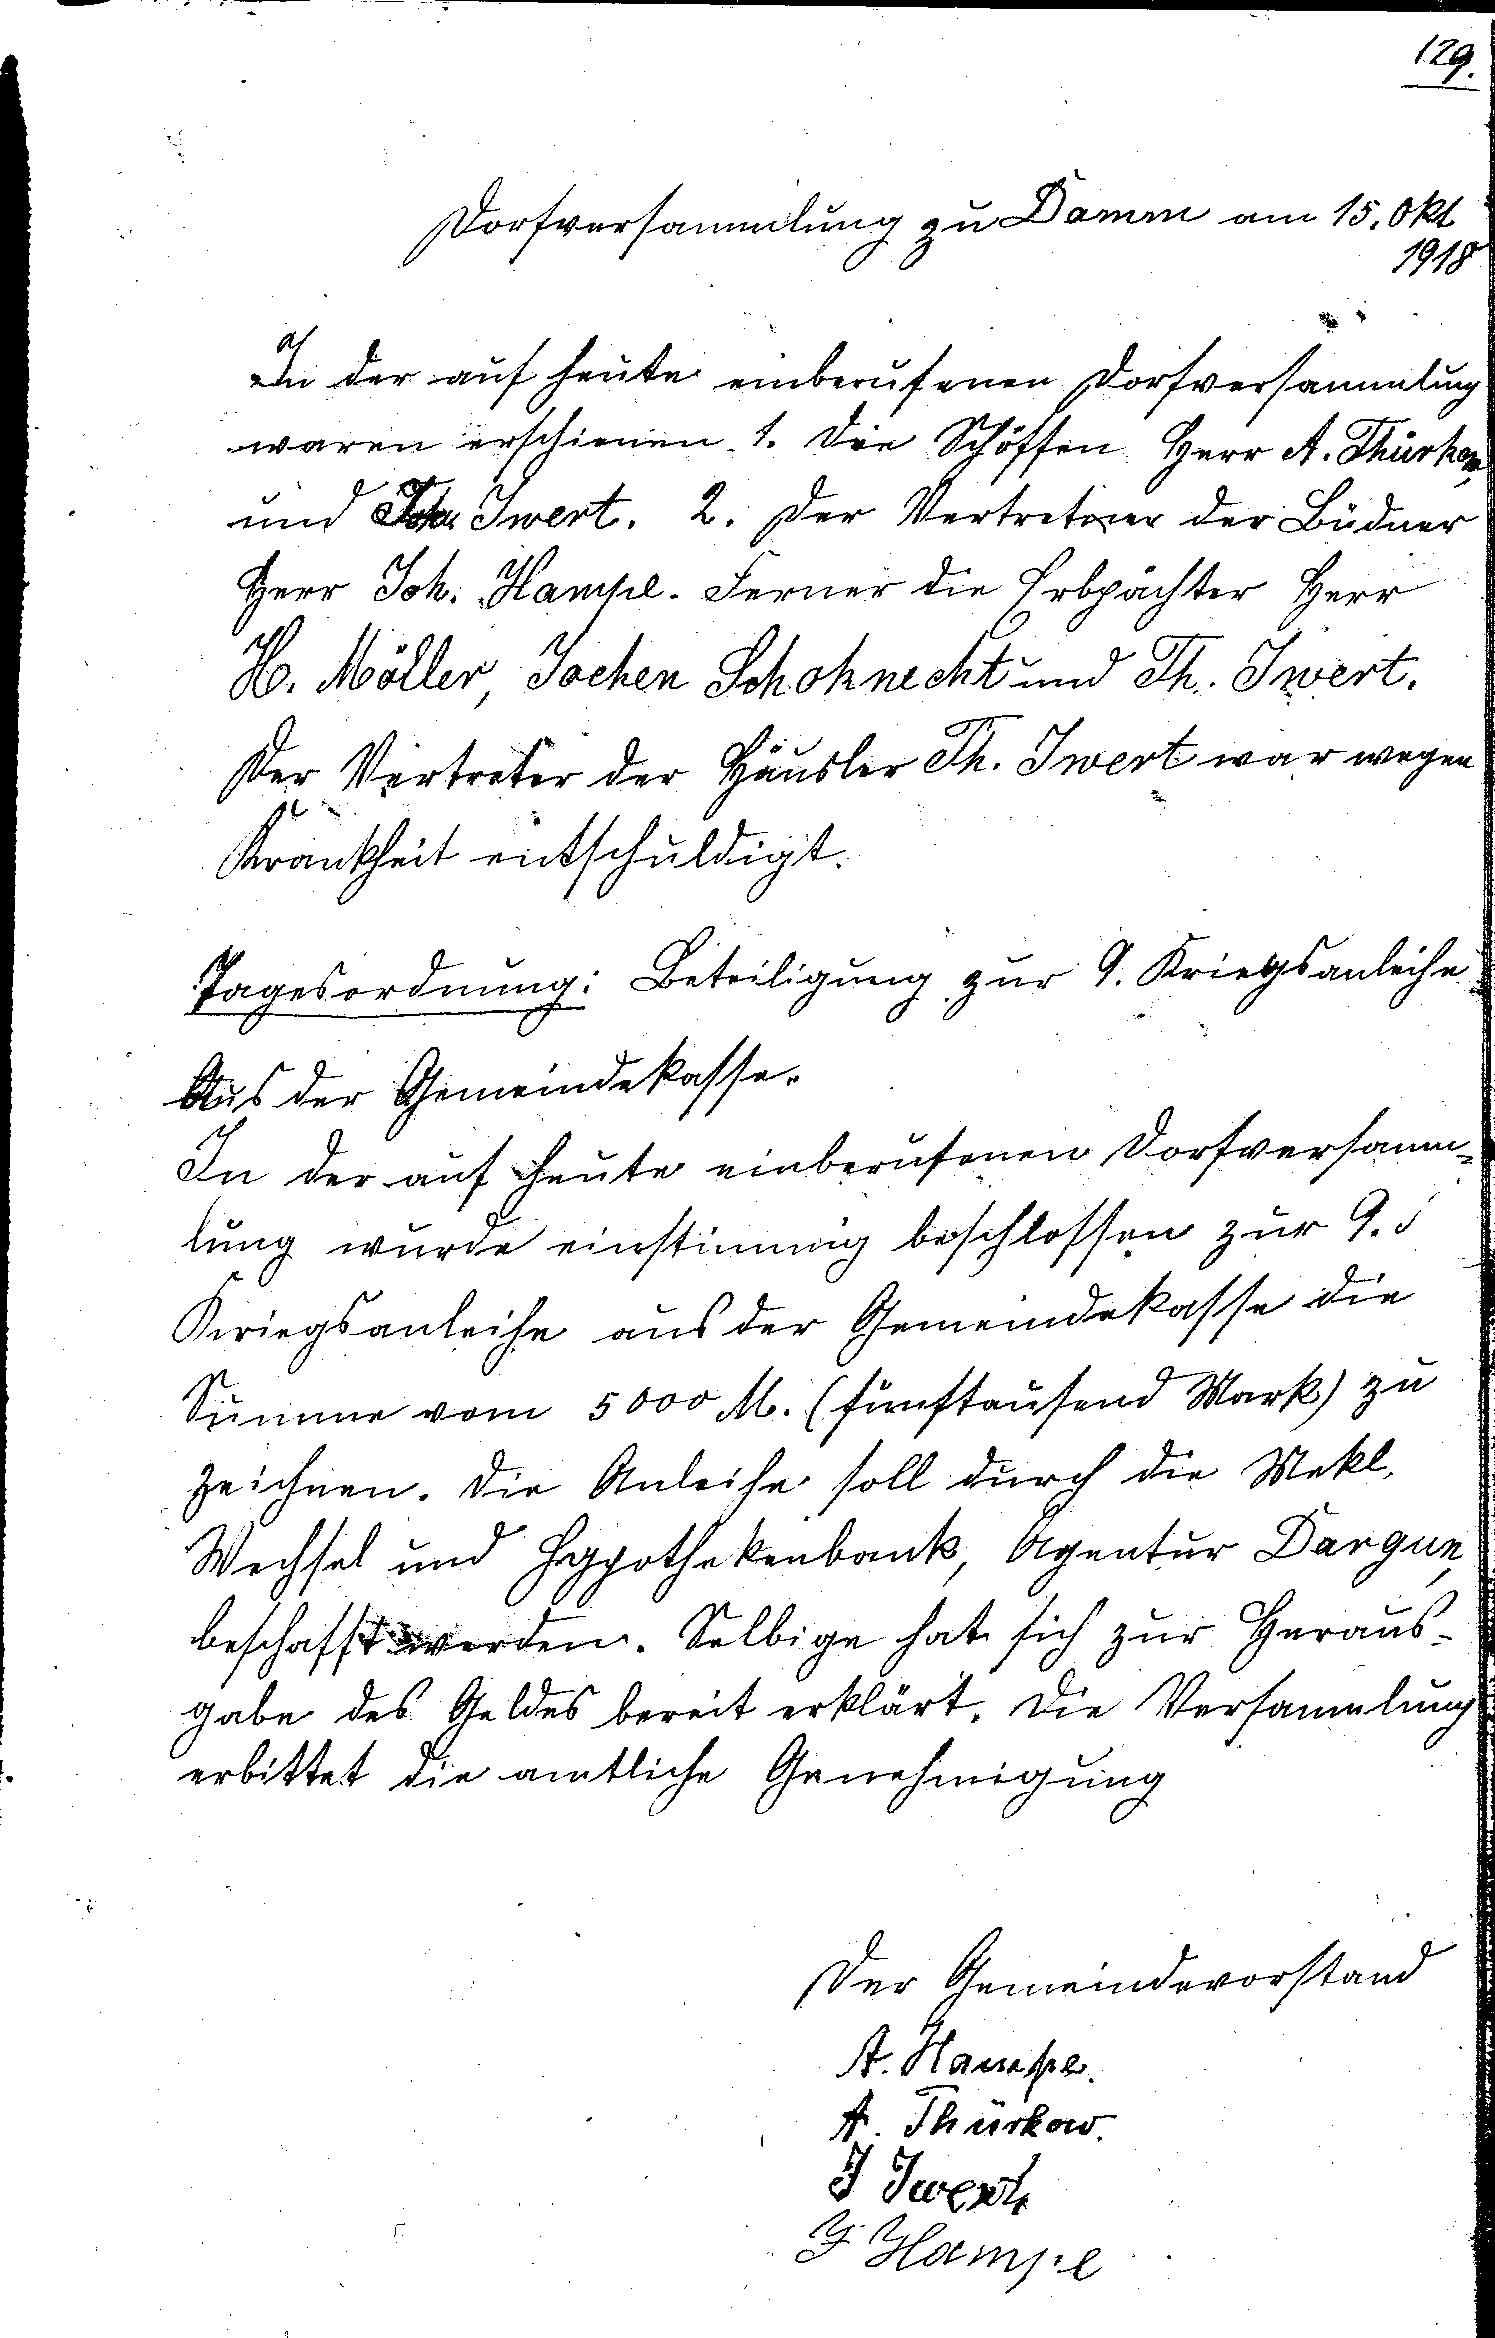 129.
Dorfversammlung zu Damm am 15. Okt
1918
In der auf heute einberufenen Dorfversammlung
waren erschienen 1. Die Schöffen Herr A. Thürkow
und Joh. Iwert. 2. Der Vertreter der Büdner
Herr Joh. Hampe. Ferner die Erbpächter Herr
H. Möller, Jochen Schohnecht und Th. Iwert.
Der Vertreter der Häusler Th. Iwert war wegen
Krankheit entschuldigt.
Tagesordnung: Beteiligung zur 9. Kriegsanleihe
Aus der Gemeindekasse.
In der auf heute einberufenen Dorfversamm-
lung wurde einstimmig beschlossen zur 9.
Kriegsanleihe aus der Gemeindekasse die
Summe vom 5000 M. (fünftausend Mark) zu
zeichnen. Die Anleihe soll durch die Mekl.
Wechsel und Hypothekenbank, Agentur Dargun,
beschafft werden. Selbige hat sich zur Heraus-
gabe des Geldes bereit erklärt. Die Versammlung
erbittet die amtliche Genehmigung
Der Gemeindevorstand
A. Hampe.
A. Thürkow.
J Iwert
J Hampe